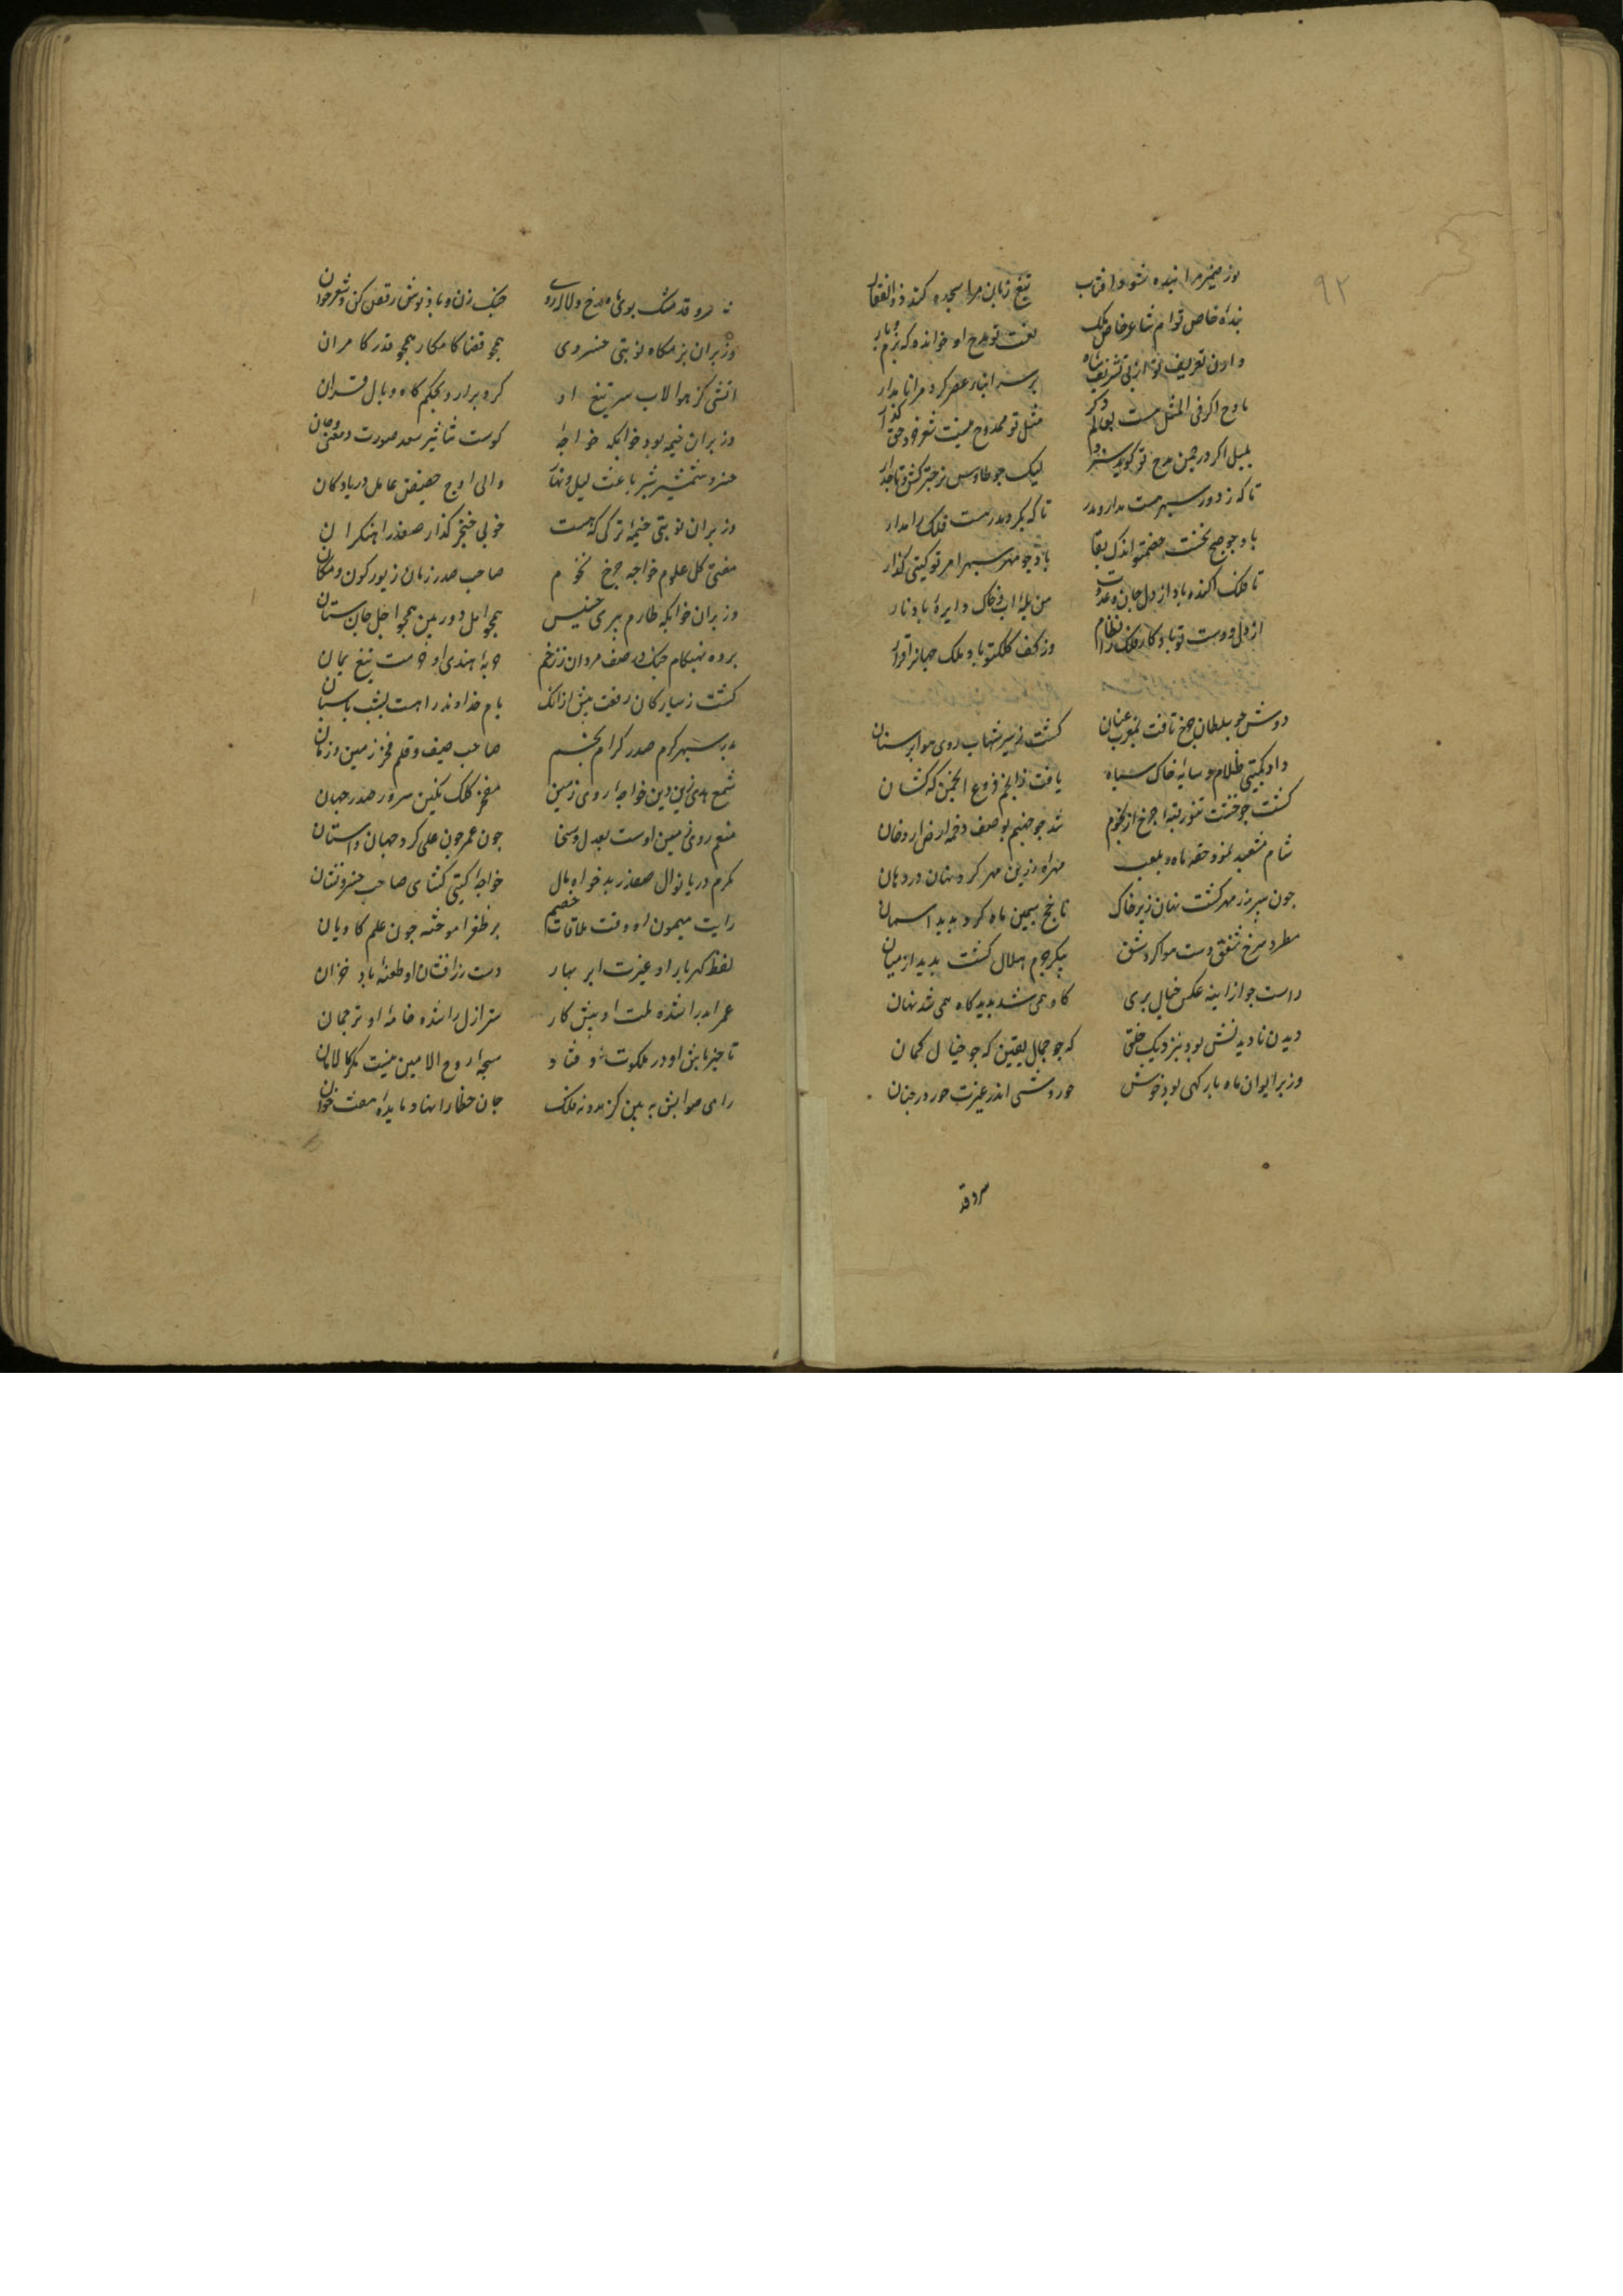 ۹۲
نور ضمیر مرا بنده شود آفتاب تیغ زبان مرا سجده کند ذوالفقار
بنده خاص توام شاعر خاص ملک نعت تو مدح او خوانده که بزم و بار
دادن تعریف تو از پی تشریف شاه بر سر ابنار عصر کرد مرا نامدار
مادح اکر فی المثل هست بعالم دکر مثل تو ممدوح نیست شعر خود حق کذار
بلبل اکر در چمن مدح تو کوید سزد لیک چو طاوس نر چتر کش و تاجدار
تا که ز دور سپهر هست مدار و مدر تا که بکرد مدر هست فلک را مدار
باد چو صبح نخست خصم تو اندک بقا باد چو مهر سپهر امر تو کیتی کذار
تا فلک اکنده باد از دل و جان عدوت
از دل و دست تو باد کار فلک را نظام وز کف و کلک تو باد ملک جهانرا قرار
دوش چو سلطان چرخ تافت بمغرب عنان کشت ز تیر شهاب روی هوا پر سنان
داد بکیتی ظلام سایه خاک سیاه یافت ز انجم فروغ انجمن کهکشان
کشت چو خشت تنور قبه چرخ از نجوم شد چو جهنم بوصف دخمه ارض از دخان
شام مشعبد نمود حقه ماه و بلعب مهره زرین مهر کرد نهان در دهان
چون سپر زر مهر کشت نهان زیر خاک ناچخ سیمین ماه کرد پدید اسمان
مطرد سرخ شفق دست هوا کرد شق پیکر جرم هلال کشت پدید از میان
راست چو از اینه عکس خیال پری کاه همی شد پدید کاه همی شد نهان
دیدن نادیدنش بود بنزدیک خلق که چو جمال یقین که چو خیال کمان
وز بر ایوان ماه بارکهی بود خوش حوروشی اندر غیرت حور در جنان
سروقد
سرو قد مشک بوی ماه رخ و لاله روی چنک زن و باده نوش رقص کن و شعر خوان
وز بر ان بزمکاه نوبتی خسروی همچو قضا کامکار همچو قدر کامران
اتشی کز هوا لاب سر تیغ او کرد برارد بحکم کاه وبال قران
وز بر ان خیمه بود خوابکه خواجه کوست بتاثیر سعد صورت و معنی و جان
خسرو شمشیر شیر باعث لیل و نهار والی اوج حضیض عامل دریا و کان
وز بر ان نوبتی خیمه ترکی که هست خونی خنجر کذار صفدر اهنکران
مفتی کل علوم خواجه چرخ نجوم صاحب صدر زمان زیور کون و مکان
وز بر ان خوابکه طارم پیری خسیس همچو امل دوربین همچو اجل جان ستان
برده بهنکام جنک در صف مردان ز زخم
کشت ز سیارکان رفعتش بیش ازانک بام خداوند را هست بشب پاسبان
مهر سپهر کرم صدر کرام عجم صاحب سیف و قلم فخر زمین و زمان
شمع هدی زین دین خواجه روی زمین مفخر کلک نکین سرور صدر جهان
منعم روی زمین اوست بعدل و سخا چون عمر چون علی کرد جهان داستان
مکرم دریا نوال صفدر بدخواه مال خواجه کیتی کشای صاحب خسرو نشان
رایت میمون او وقت ملاقات خصم بر ظفر اموخته چون علم کاویان
لفظ کهربار او غیرت ابر بهار دست زرافشان او طعنه باد خزان
عمر ابد را شده همت او پیشکار سر ازل را شده خامه او ترجمان
تا خبر بانش او در ملکوت اوفتاد سبحه روح الامین نیست مکر کالامان
رای صوابش به بین کز مدد نه فلک جان خطا را نهاد مایده هفت خوان